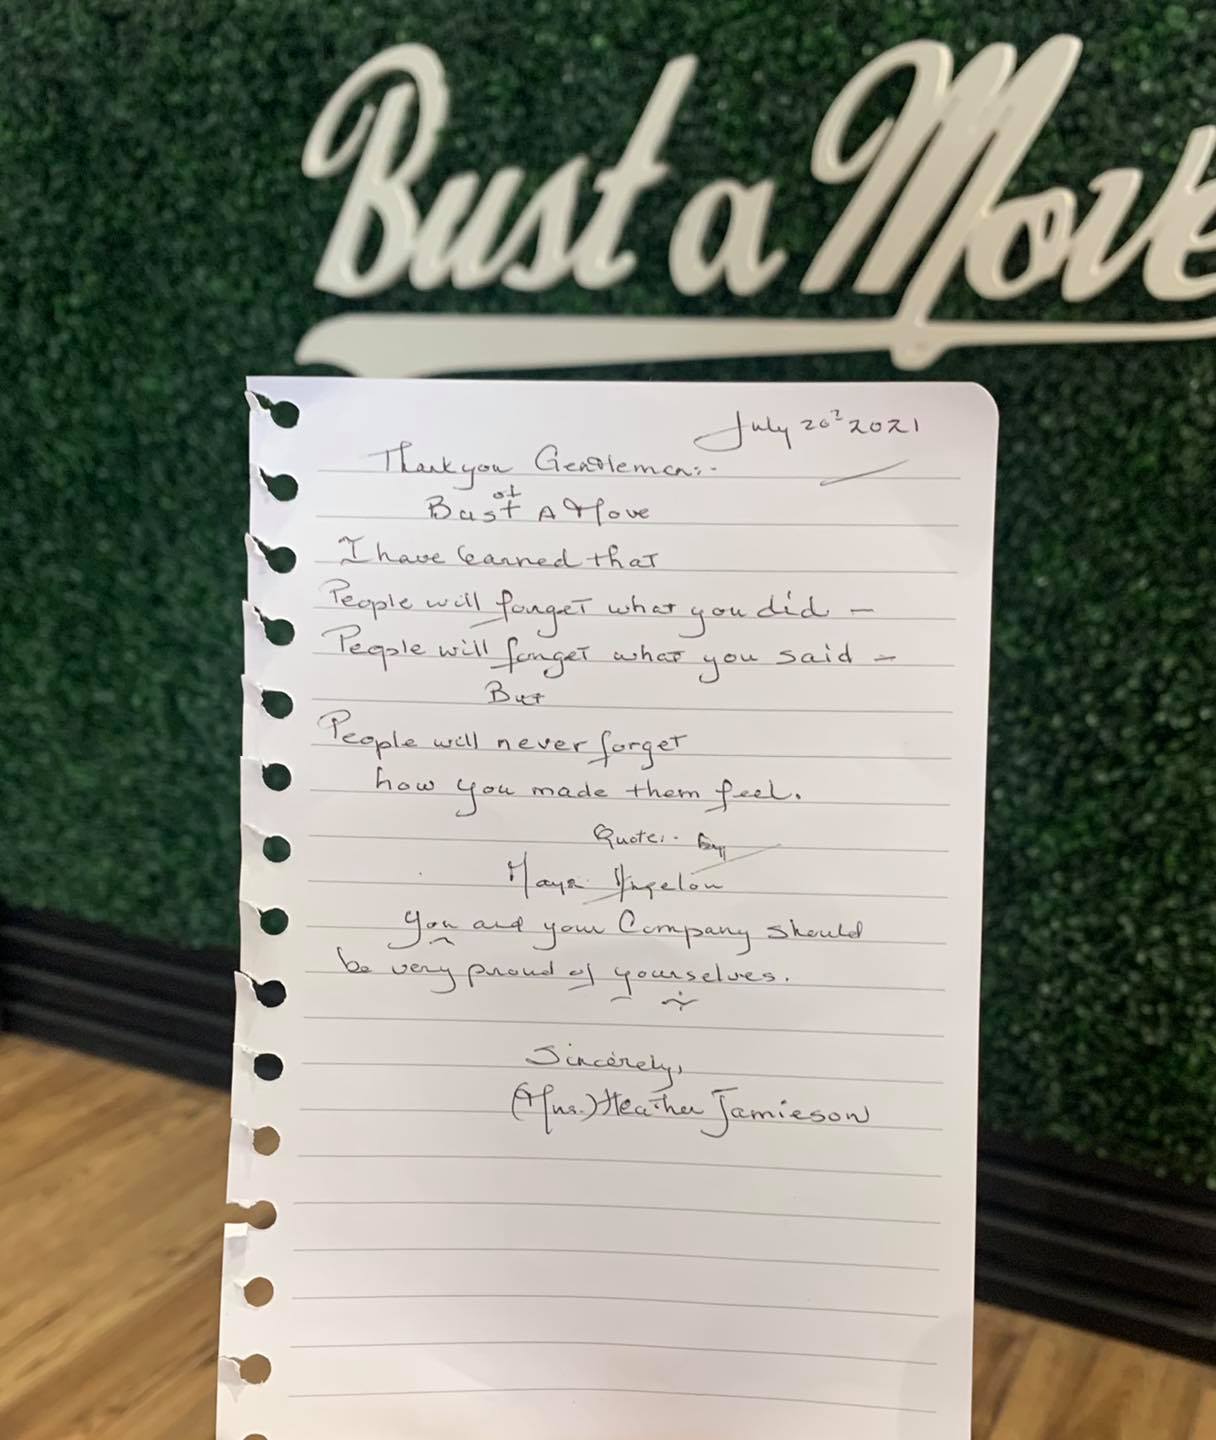 Bust a Move
July 20² 2021
Thank you Gentlemen:-
of
Bust A Move
I have learned that
People will forget what you did –
People will forget what you said –
But
People will never forget
how you made them feel.
Quote:- by
Maya Angelou
You and your Company should
be very proud of yourselves.
Sincerely,
(Mrs.) Heather Jamieson